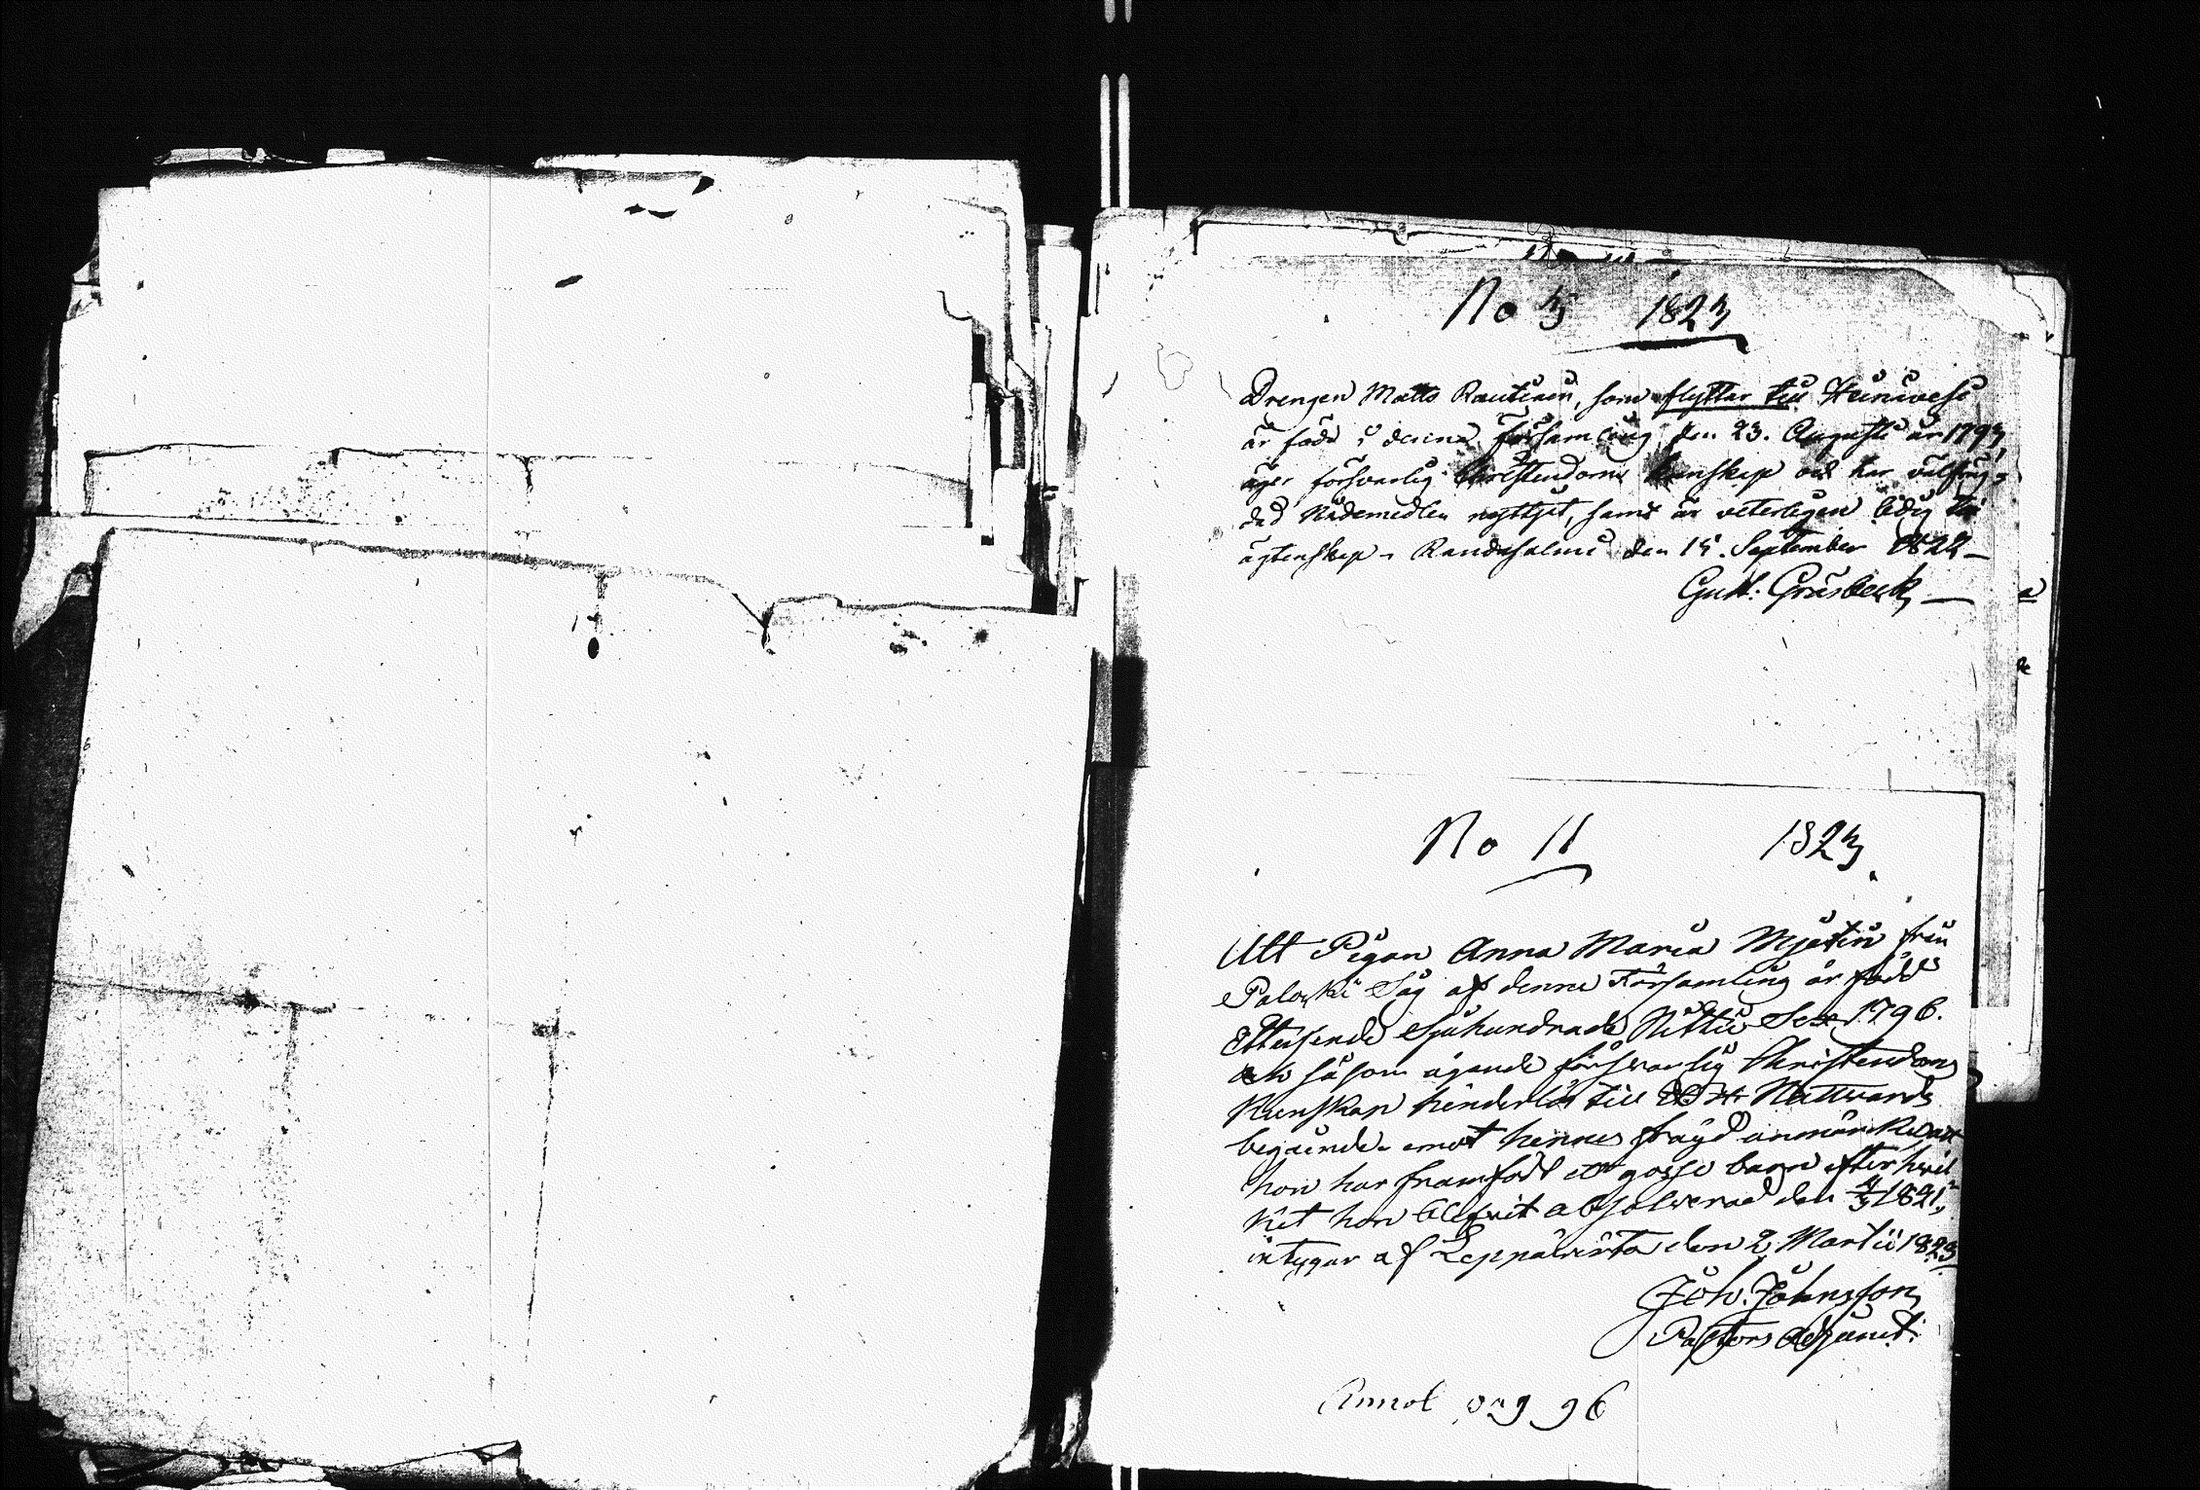 No 3 1823
Drengen Matts Rautiain, som flyttar till Heinävesi
är född i denna församling den 23. Augusti år 1793,
äger försvarlig Christendoms kunskap och har välfräg-
dad Nådemedlen nyttjat, samt är veterligen ledig till
ägtenskap. Randasalmi den 15. September 1822
Gust: Gråsbeck
No 11 1823
Att Pigan Anna Maria Mjetin från
Paloski Såg af denne Församling är född
Ettusende Sjuhundrade Nittio Sex 1796.
och såsom ägande försvarlig Christendoms
Kunskap hinderlös till H. H. Nattvards
begående. emot hennes frägd anmärkes att
hon har framfödt ett gosse barn efter hvil
ket hon blefvit absolverad den 4/3 1821,
intygar af Leppävirta den 2 Martii 1823
Joh. Johnsson
Pastors Adjunct.
Annot pag 96